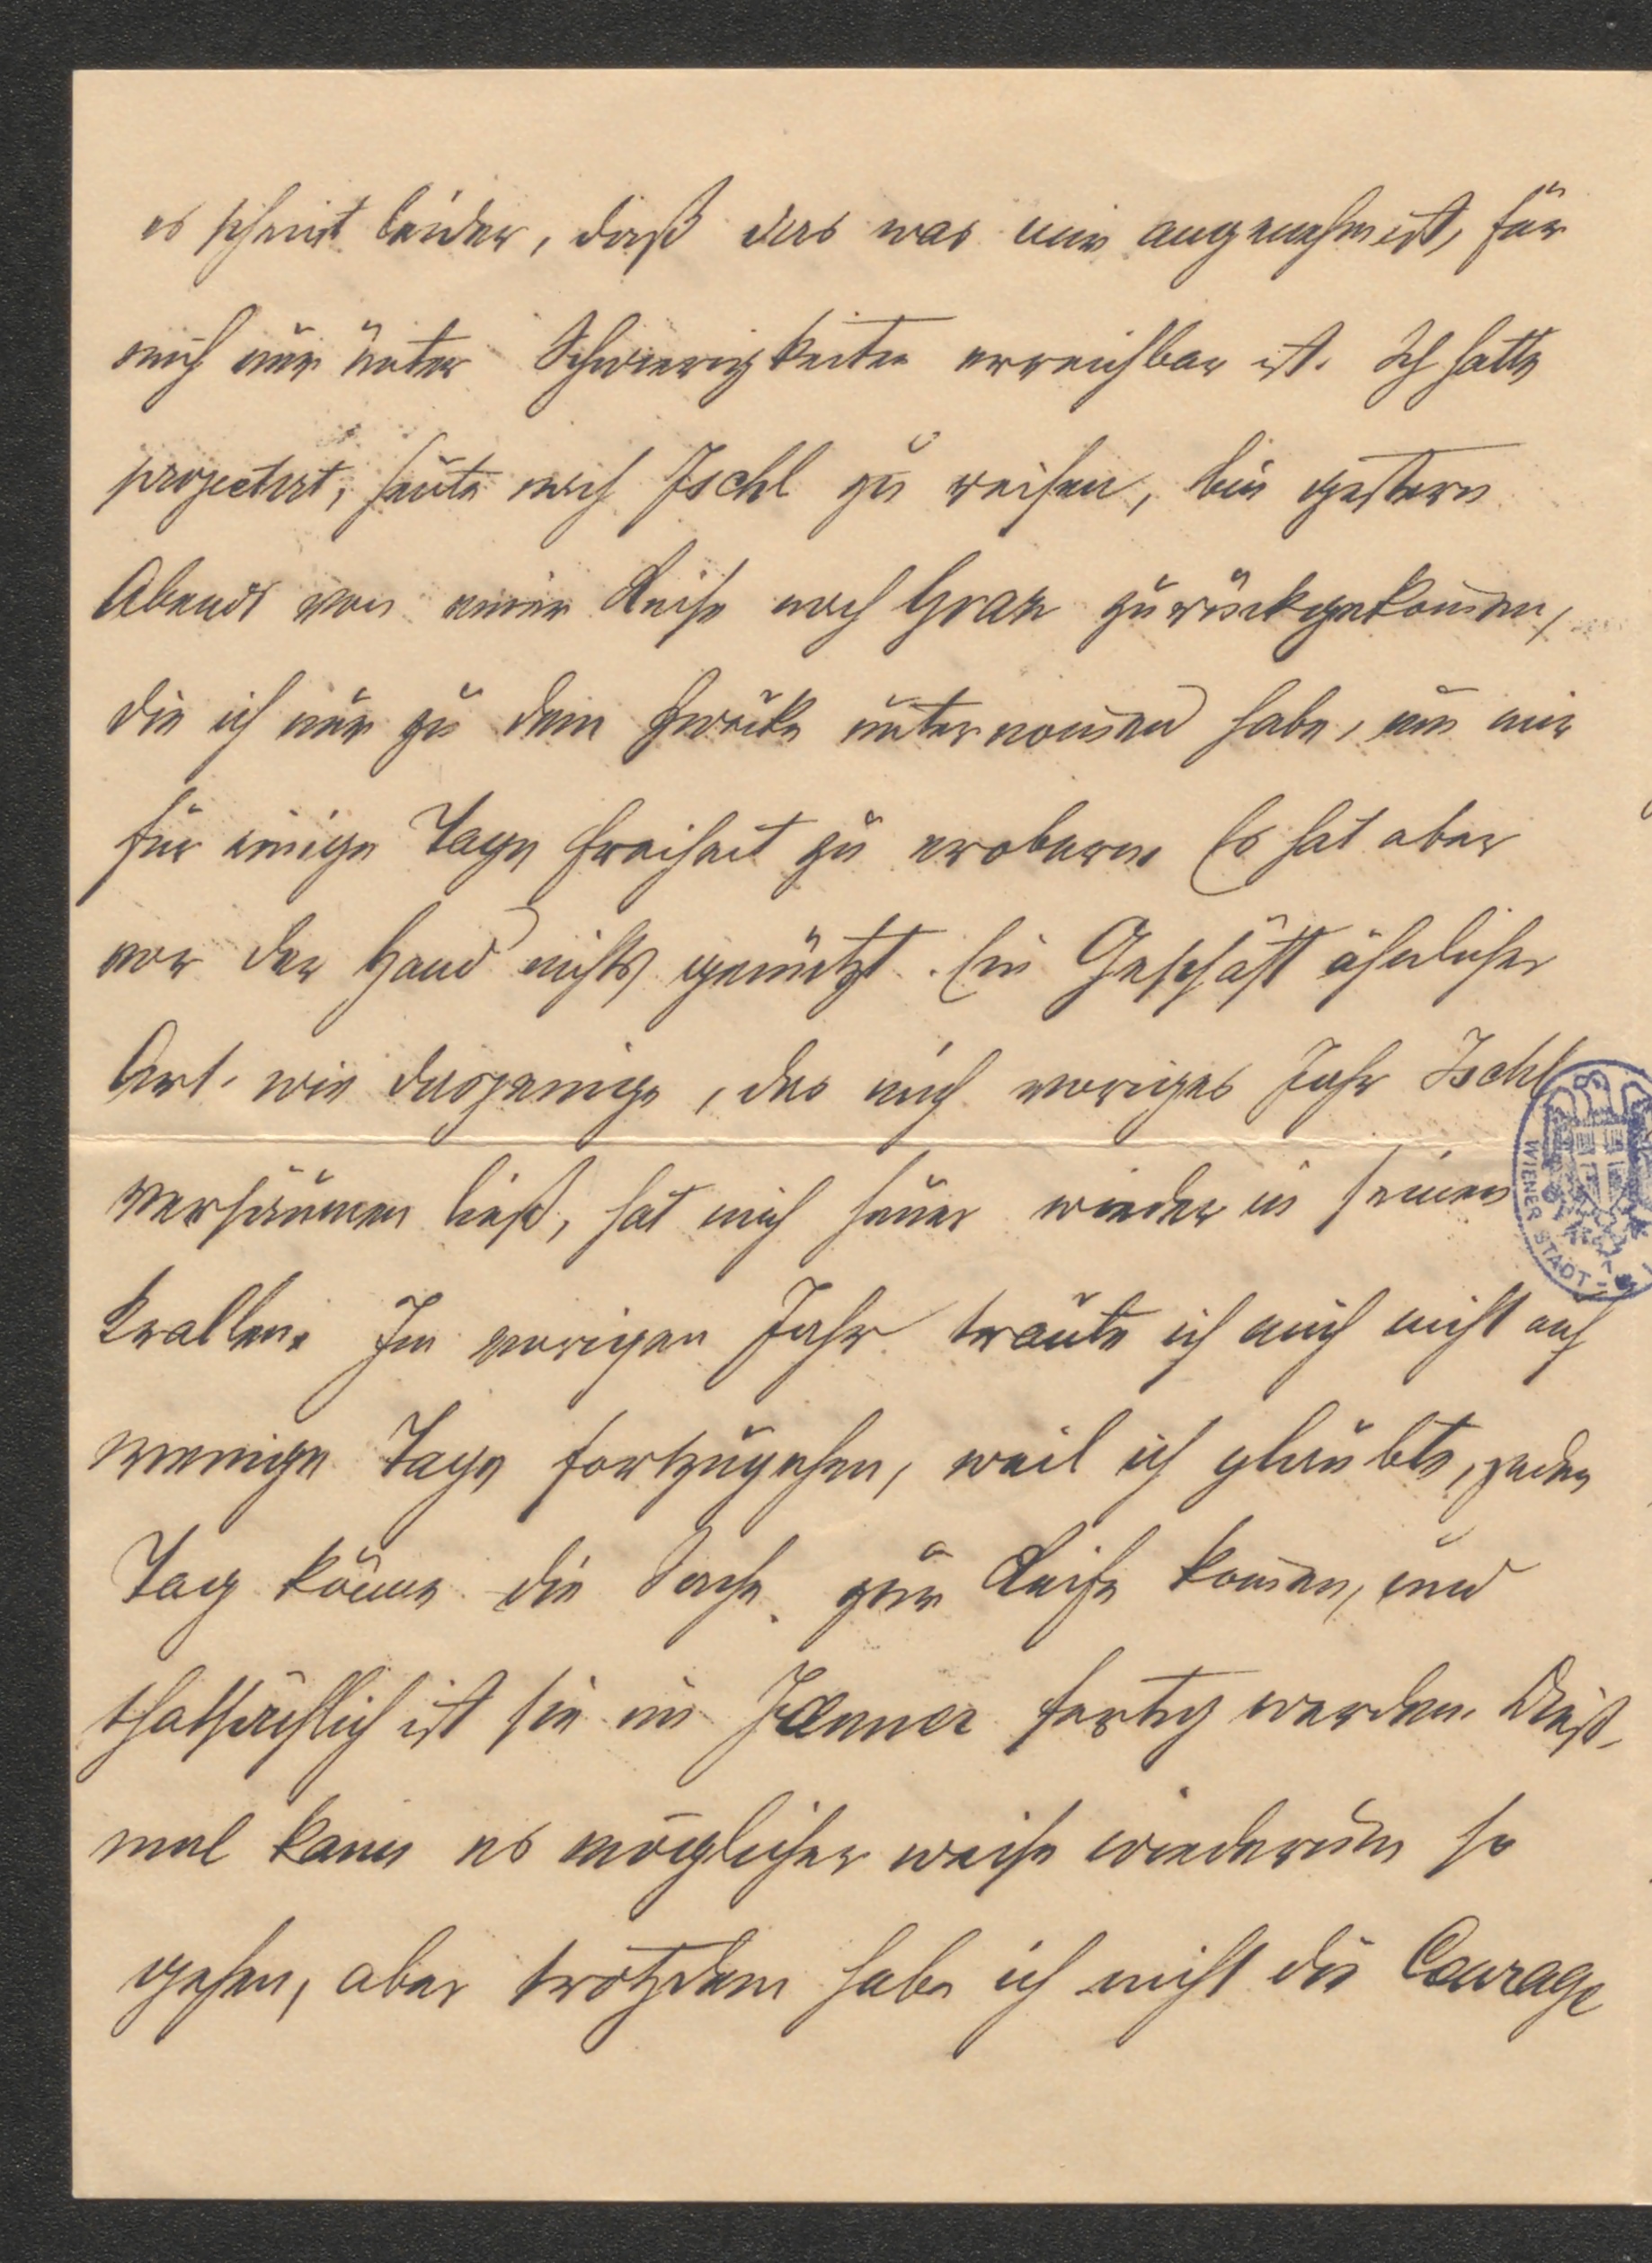 es scheint leider, daß das was mir angenehm ist, für
mich nur unter Schwierigkeiten erreichbar ist. Ich hatte
projectirt, heute nach Ischl zu reisen, bin gestern
Abends von einer Reise nach Graz zurückgekommen,
die ich nur zu dem Zwecke unternommen habe, um mir
für einige Tage Freiheit zu erobern. Es hat aber
vor der Hand nichts genützt. Ein Geschäft ähnlicher
Art wie dasjenige, das mich voriges Jahr Ischl
versäumen ließ, hat mich heuer wieder in seinen
Krallen. Im vorigen Jahr traute ich mich nicht auf
wenige Tage fortzugehen, weil ich glaubte, jeden
Tag könne die Sache zur Reife kommen, und
thatsächlich ist sie im Jänner fertig werden. Dieß-
mal kann es möglicher weise wiederum so
gehen, aber trotzdem habe ich nicht die Courage
WIENER STADT-